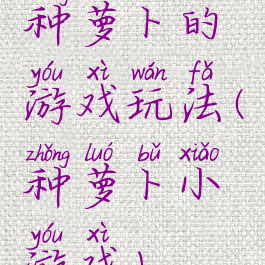 种萝卜的
yóu xì wán fǎ
游戏玩法(
zhǒng luó bǔ xiǎo
种萝卜小
yóu xì
游戏)